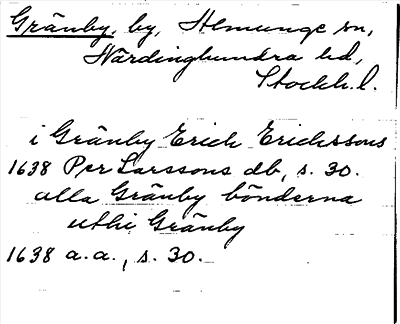 Gränby, by, Almunge sn,
Närdinghundra hd,
Stockh. l.
i Gränby Erich Ericksons
1638 Per Larssons db, s. 30.
alla Gränby bönderna
uthi Gränby
1638 a.a., s. 30.